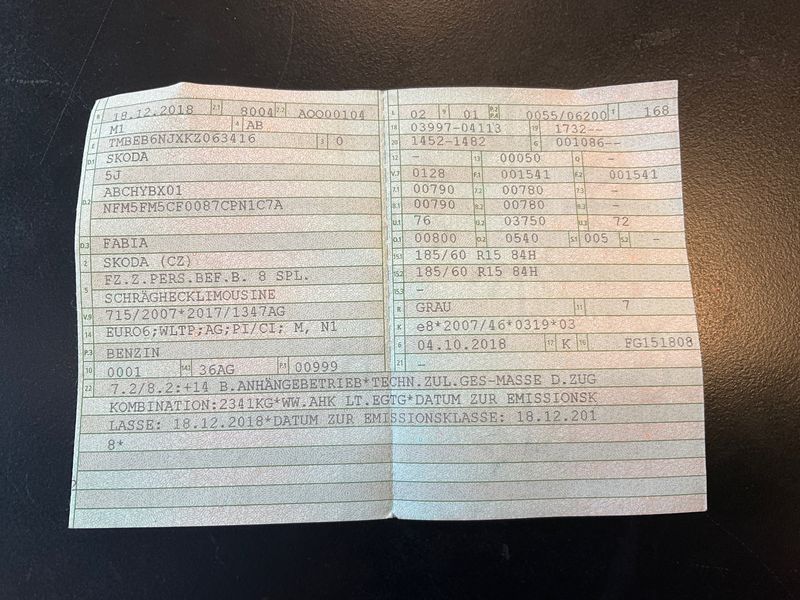 B 18.12.2018 2.1 8004 2.2 AOQ00104
J M1 4 AB
E TMBEB6NJXKZ063416 3 0
D.1 SKODA
5J
D.2 ABCHYBX01
NFM5FM5CF0087CPN1C7A
D.3 FABIA
2 SKODA (CZ)
5 FZ.Z.PERS.BEF.B. 8 SPL.
SCHRÄGHECKLIMOUSINE
V.9 715/2007*2017/1347AG
14 EURO6;WLTP;AG;PI/CI; M, N1
P.3 BENZIN
10 0001 14.1 36AG P.1 00999
L 02 9 01 P.2 P.4 0055/06200 T 168
18 03997-04113 19 1732--
20 1452-1482 G 001086--
12 - 13 00050 Q -
V.7 0128 F.1 001541 F.2 001541
7.1 00790 7.2 00780 7.3 -
8.1 00790 8.2 00780 8.3 -
U.1 76 U.2 03750 U.3 72
O.1 00800 O.2 0540 S.1 005 S.2 -
15.1 185/60 R15 84H
15.2 185/60 R15 84H
15.3 -
R GRAU 11 7
K e8*2007/46*0319*03
6 04.10.2018 17 K 16 FG151808
21 -
22 7.2/8.2:+14 B.ANHÄNGEBETRIEB*TECHN.ZUL.GES-MASSE D.ZUG
KOMBINATION:2341KG*WW.AHK LT.EGTG*DATUM ZUR EMISSIONSK
LASSE: 18.12.2018*DATUM ZUR EMISSIONSKLASSE: 18.12.201
8*